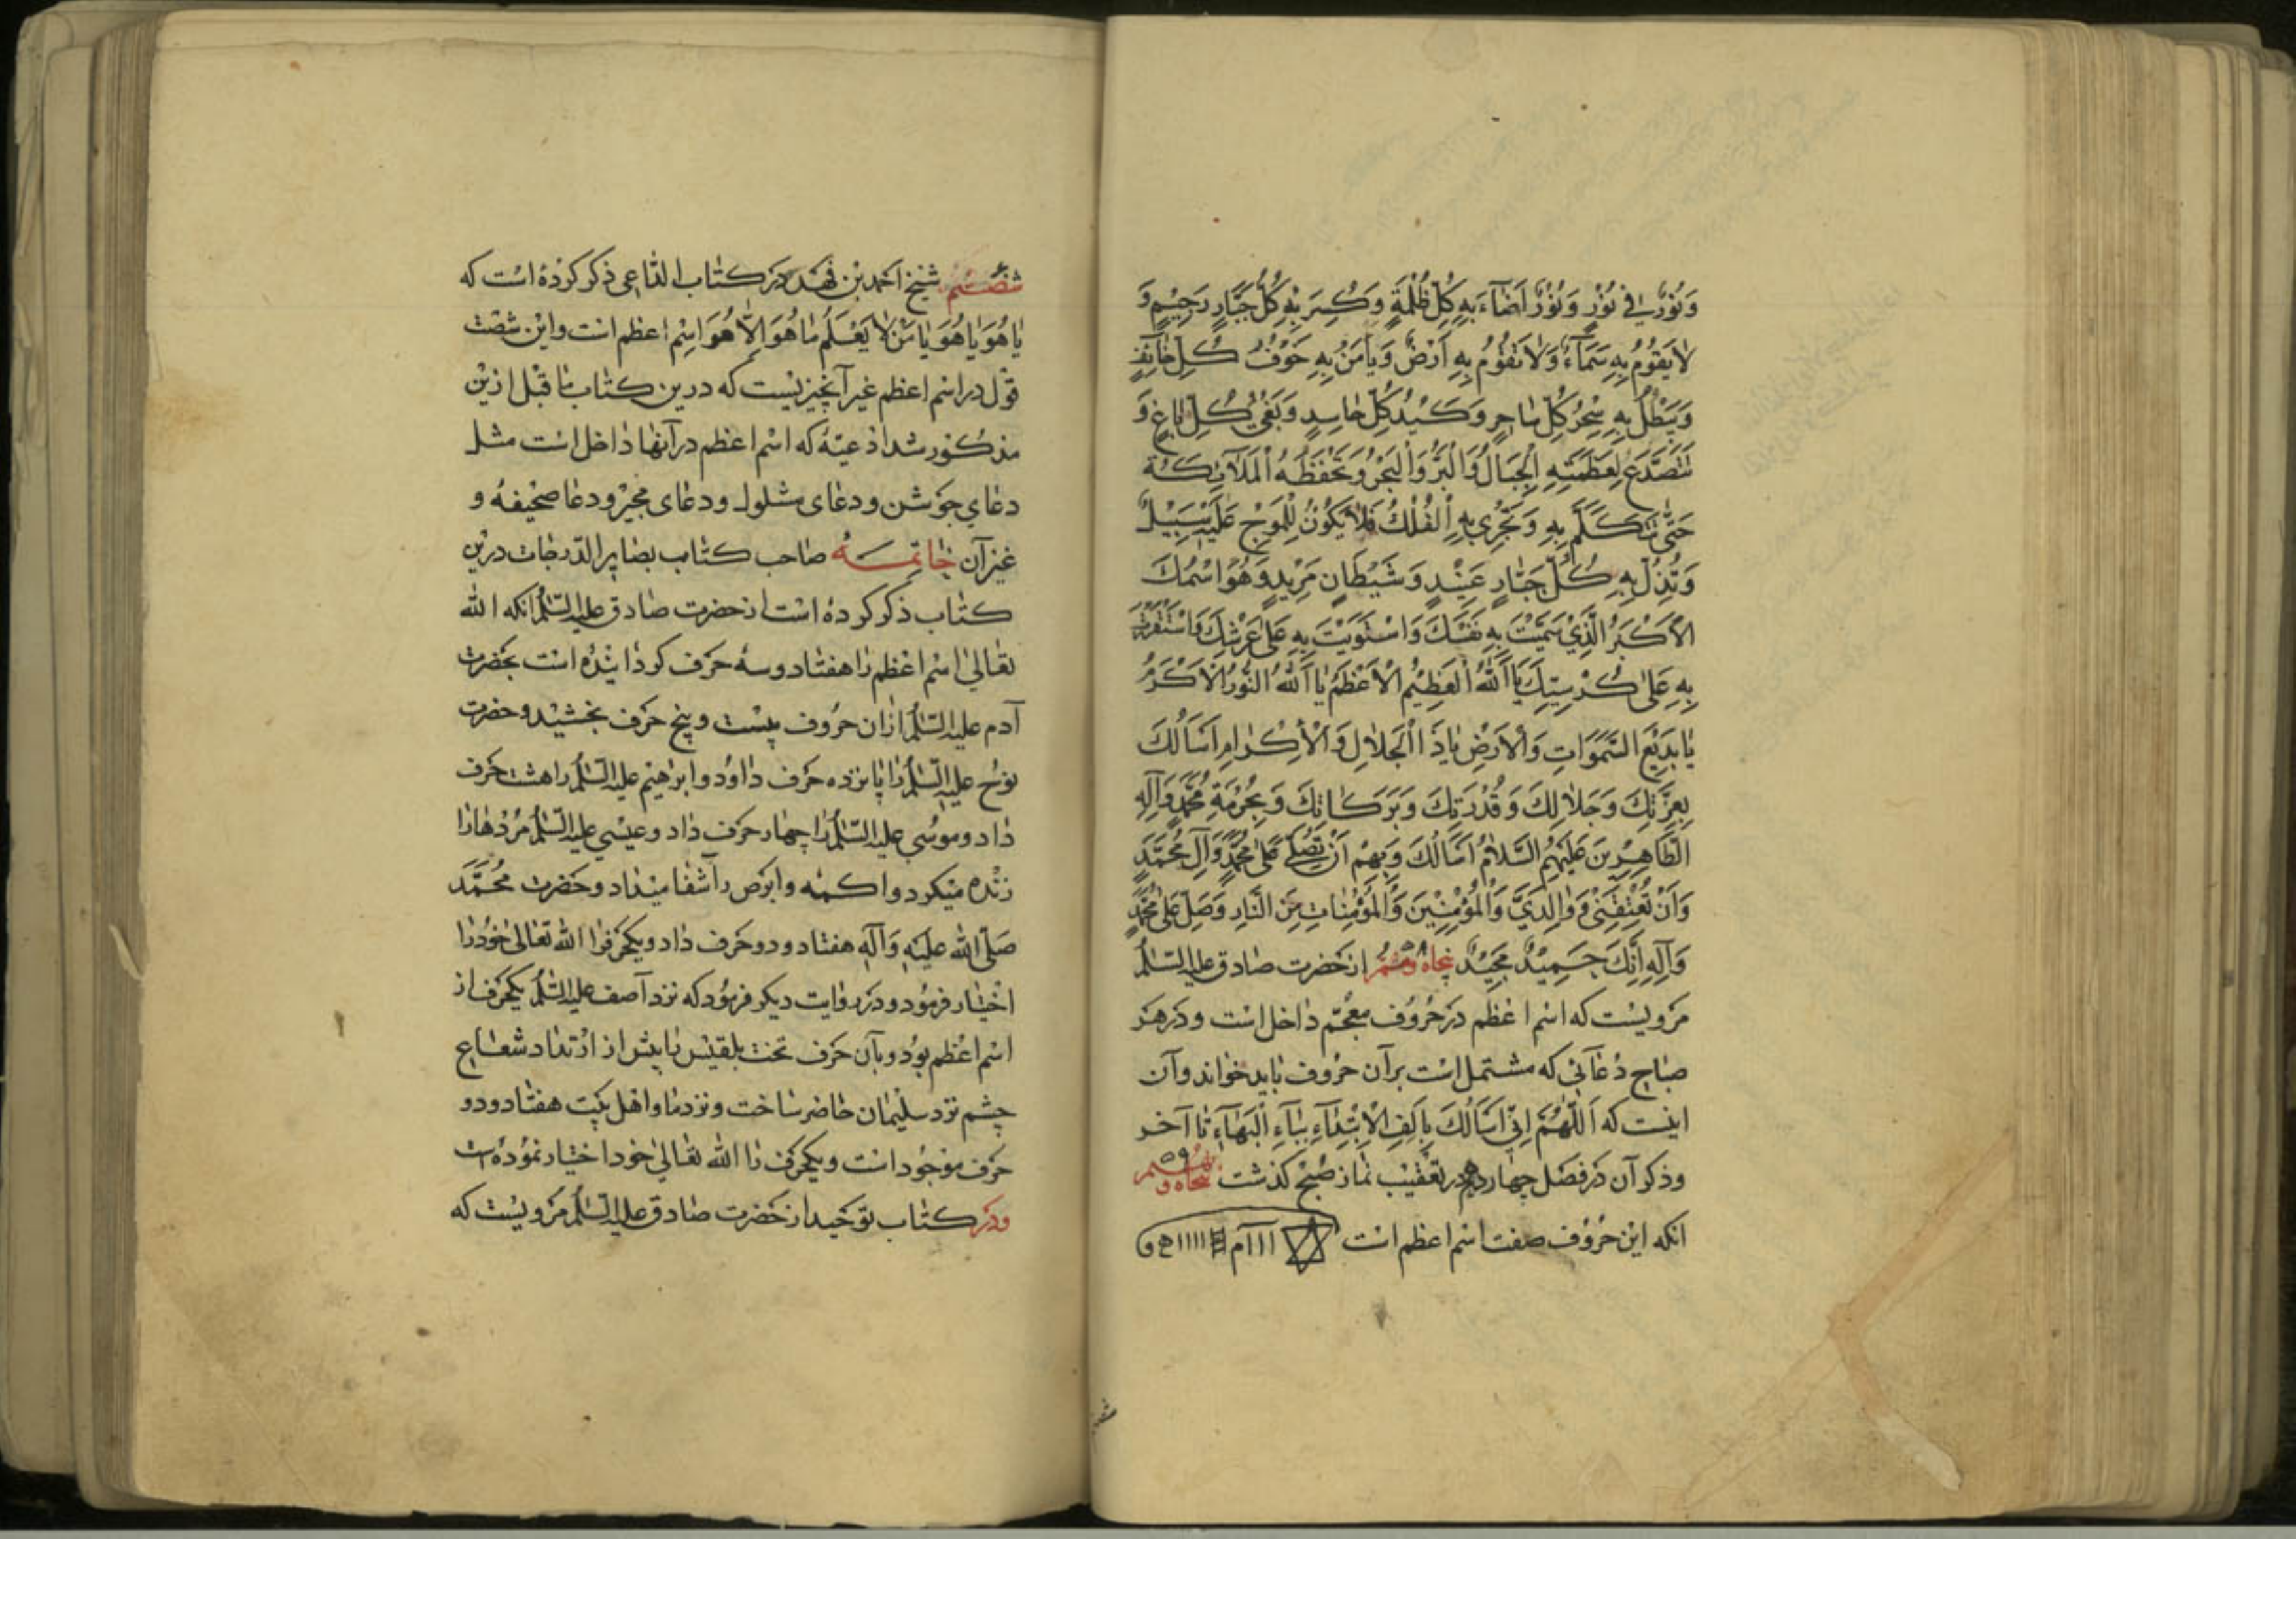 وَنُورٌ فِي نُورٍ وَنُورٌ اَضَآءَ بِهِ كُلِّ ظُلْمَةٍ وَكُسِرَ بِهِ كُلُّ جَبَّارٍ رَجِيمٍ وَ
لَا يَقُومُ بِهِ سَمَآءٌ وَلَا تَقُومُ بِهِ اَرْضٌ وَيَاْمَنُ بِهِ خَوْفُ كُلِّ خَآئِفٍ
وَيَبْطُلُ بِهِ سِحْرُ كُلِّ سَاحِرٍ وَكَيْدُ كُلِّ حَاسِدٍ وَبَغْيُ كُلِّ بَاغٍ وَ
تَتَصَدَّعُ لِعَظَمَتِهِ الْجِبَالُ وَالْبَرُّ وَالْبَحْرُ وَتَحْفَظُهُ الْمَلَآئِكَةُ
حَتّٰى تَتَكَلَّمَ بِهِ وَتَجْرِي بِهِ الْفُلْكُ فَلَا يَكُونُ لِلْمَوْجِ عَلَيْهِ سَبِيلٌ
وَتُذِلُّ بِهِ كُلَّ جَبَّارٍ عَنِيدٍ وَشَيْطَانٍ مَرِيدٍ وَهُوَ اسْمُكَ
الْاَكْبَرُ الَّذِي سَمَّيْتَ بِهِ نَفْسَكَ وَاسْتَوَيْتَ بِهِ عَلٰى عَرْشِكَ وَاسْتَقْرَرْتَ
بِهِ عَلٰى كُرْسِيِّكَ يَا اَللّٰهُ الْعَظِيمُ الْاَعْظَمُ يَا اَللّٰهُ النُّورُ الْاَكْرَمُ
يَا بَدِيْعَ السَّمٰوَاتِ وَالْاَرْضِ يَا ذَا الْجَلَالِ وَالْاِكْرَامِ اَسْاَلُكَ
بِعِزَّتِكَ وَجَلَالِكَ وَقُدْرَتِكَ وَبَرَكَاتِكَ وَبِحُرْمَةِ مُحَمَّدٍ وَآلِهِ
الطَّاهِرِينَ عَلَيْهِمُ السَّلَامُ اَسْاَلُكَ وَبِهِمْ اَنْ تُصَلِّيَ عَلٰى مُحَمَّدٍ وَآلِ مُحَمَّدٍ
وَاَنْ تُعْتِقَنِي وَوَالِدَيَّ وَالْمُؤْمِنِيْنَ وَالْمُؤْمِنَاتِ مِنَ النَّارِ وَصَلِّ عَلٰى مُحَمَّدٍ
وَآلِهِ اِنَّكَ حَمِيْدٌ مَجِيْدٌ پنجاه و هشتم ۵۸ از حضرت صادق عليه السّلم
مرويست كه اسم اعظم در حروف معجم داخل است و در هر
صباح دعآئى كه مشتمل است بر آن حروف بايد خواند و آن
اينست كه اَللّٰهُمَّ اِنِّي اَسْاَلُكَ بِاَلِفِ الْاِبْتِدَآءِ بِبَآءِ الْبَهَآءِ تا آخر
و ذكر آن در فصل چهاردهم در تعقيب نماز صبح كذشت پنجاه و نهم ۵۹
انكه اين حروف صفت اسم اعظم است ااا آم ااااا ه و
شصتم شيخ احمد بن فهد در كتاب الدّاعى ذكر كرده است كه
يَا هُوَ يَا هُوَ يَا مَنْ لَا يَعْلَمُ مَا هُوَ اِلَّا هُوَ اسم اعظم است و اين شصت
قول در اسم اعظم غير آنچيز نيست كه درين كتاب ما قبل ازين
مذكور شد ادعيهٔ كه اسم اعظم در آنها داخل است مثل
دعاى جوشن و دعاى مشلول و دعاى مجير و دعا صحيفه و
غير آن خاتمه صاحب كتاب بصاير الدّرجات درين
كتاب ذكر كرده است از حضرت صادق عليه السّلم انكه الله
تعالى اسم اعظم را هفتاد و سه حرف كردانيده است بحضرت
آدم عليه السّلم ازان حروف بيست و پنج حرف بخشيد و حضرت
نوح عليه السّلم را پانزده حرف داد و ابراهيم عليه السّلم را هشت حرف
داد و موسى عليه السّلم را چهار حرف داد و عيسى عليه السّلم مردها را
زنده ميكرد و اكمه و ابرص را شفا ميداد و حضرت محمّد
صلّى الله عليه وآله هفتاد و دو حرف داد و يكحرف را الله تعالى خود را
اختيار فرمود و در روايت ديكر فرمود كه نزد آصف عليه السّلم يكحرف از
اسم اعظم بود و بآن حرف تخت بلقيس را پيش از ارتداد شعاع
چشم نزد سليمان حاضر ساخت و نزد ما و اهل بيت هفتاد و دو
حرف موجود است و يكحرف را الله تعالى خود اختيار نموده است
و در كتاب توحيد از حضرت صادق عليه السّلم مرويست كه